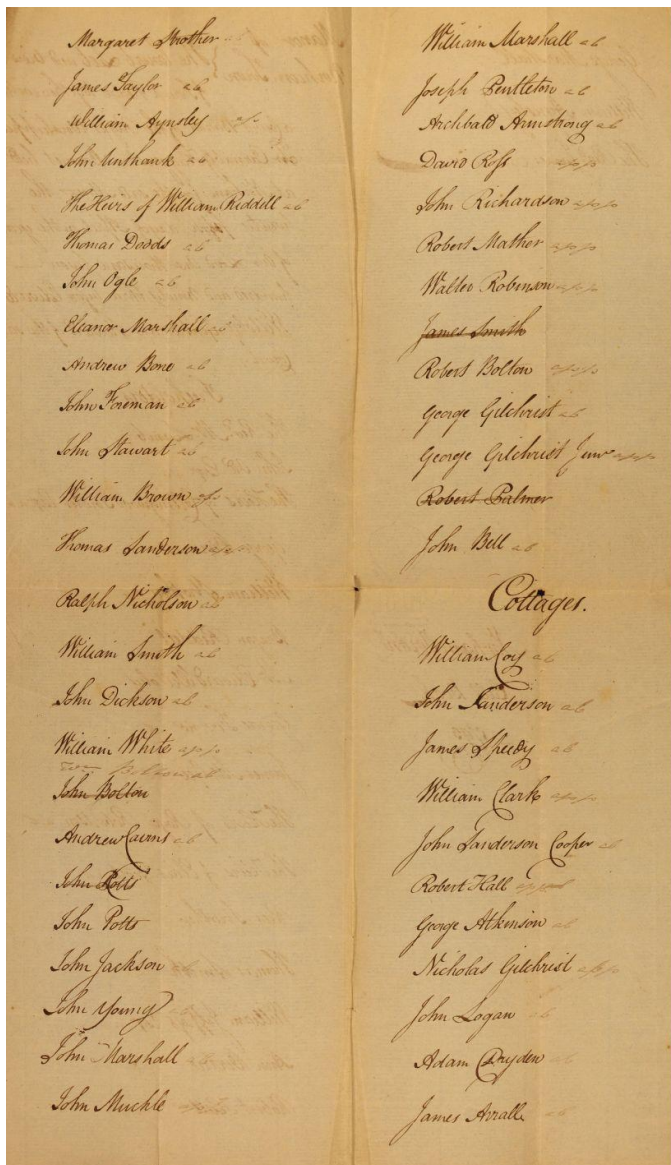 Margaret Strother
James Taylor ab
William Aynsley
John Unthank ab
The Heirs of William Riddell ab
Thomas Dodds ab
John Ogle ab
Eleanor Marshall ab
Andrew Bone ab
John Foreman ab
John Stawart ab
William Brown
Thomas Sanderson
Ralph Nicholson ab
William Smith ab
John Dickson ab
William White
John Bolton
Andrew Cairns ab
John Potts
John Jackson
John Young
John Marshall
John Muckle
William Marshall ab
Joseph Pentleton ab
Archbald Armstrong ab
David Ross
John Richardson
Robert Mather
Walter Robinson
James Smith
Robert Bolton
George Gilchrist ab
George Gilchrist Junr
Robert Palmer
John Bell ab
Cottages.
William Coy ab
John Sanderson ab
James Speedy ab
William Clark
John Sanderson Cooper ab
Robert Hall
George Atkinson ab
Nicholas Gilchrist
John Logan ab
Adam Dryden ab
James Arrall ab